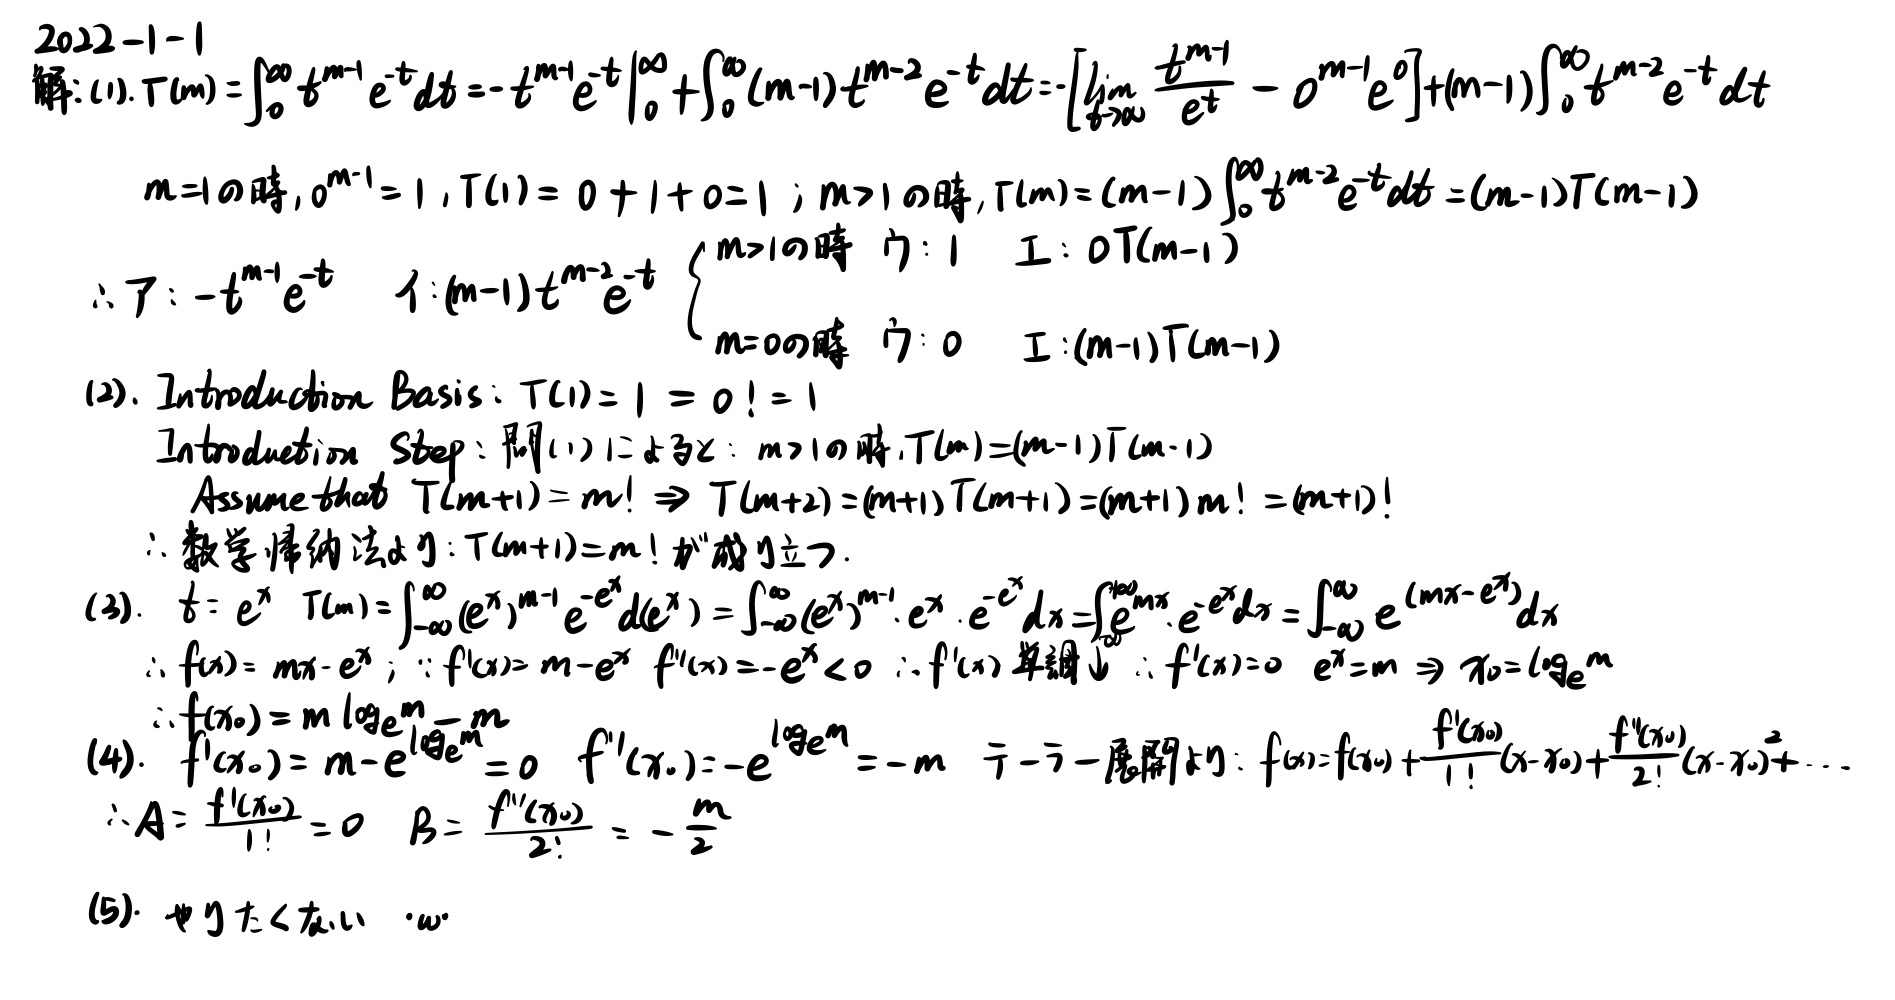 2022-1-1
解:(1). T(m) = ∫_0^∞ t^{m-1} e^{-t} dt = -t^{m-1} e^{-t} |_0^∞ + ∫_0^∞ (m-1) t^{m-2} e^{-t} dt = -[lim_{t→∞} t^{m-1}/e^t - 0^{m-1} e^0] + (m-1) ∫_0^∞ t^{m-2} e^{-t} dt
m=1の時, 0^{m-1} = 1, T(1) = 0 + 1 + 0 = 1 ; m>1の時, T(m) = (m-1) ∫_0^∞ t^{m-2} e^{-t} dt = (m-1)T(m-1)
∴ ア: -t^{m-1} e^{-t} イ: (m-1) t^{m-2} e^{-t} { m>1の時 ウ: 1 エ: 0T(m-1)
m=0の時 ウ: 0 エ: (m-1)T(m-1)
(2). Introduction Basis: T(1) = 1 = 0! = 1
Introduction Step: 問(1)によると: m>1の時, T(m)=(m-1)T(m-1)
Assume that T(m+1) = m! ⇒ T(m+2) = (m+1)T(m+1) = (m+1)m! = (m+1)!
∴ 数学帰納法より: T(m+1)=m! が成り立つ.
(3). t = e^x T(m) = ∫_{-∞}^∞ (e^x)^{m-1} e^{-e^x} d(e^x) = ∫_{-∞}^∞ (e^x)^{m-1} · e^x · e^{-e^x} dx = ∫_{-∞}^{+∞} e^{mx} · e^{-e^x} dx = ∫_{-∞}^∞ e^{(mx-e^x)} dx
∴ f(x) = mx - e^x ; ∵ f'(x) = m - e^x f''(x) = -e^x < 0 ∴ f'(x) 単調↓ ∴ f'(x) = 0 e^x = m ⇒ x_0 = log_e m
∴ f(x_0) = m log_e m - m
(4). f'(x_0) = m - e^{log_e m} = 0 f''(x_0) = -e^{log_e m} = -m テーラー展開より: f(x) = f(x_0) + f'(x_0)/1! (x-x_0) + f''(x_0)/2! (x-x_0)^2 + ····
∴ A = f'(x_0)/1! = 0 B = f''(x_0)/2! = -m/2
(5). やりたくない ·ω·